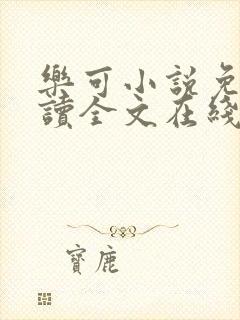 樂可小說免
讀全文在綫
寶鹿